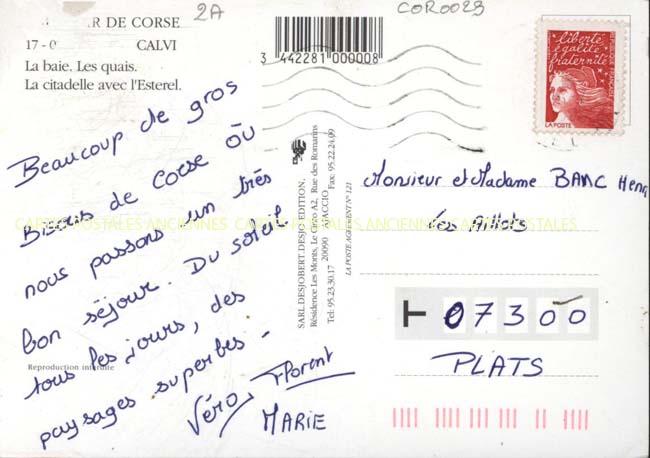 2A
COR0023
R DE CORSE
17 - 0 CALVI
La baie. Les quais.
La citadelle avec l'Esterel.
3 442281 000008
liberté
égalité
fraternité
LA POSTE
Beaucoup de gros
Bisous de Corse où
nous passons un très
bon séjour. Du soleil
tous les jours, des
paysages superbes -
Véro Florent
MARIE
Reproduction interdite
SARL.DESJOBERT.DESJO EDITION.
Résidence Les Monts, Le Cirzo A2, Rue des Romarins
Tel: 95.23.30.17 20090 AJACCIO Fax: 95.22.24.99
LA POSTE AGREMENT N° 121
Monsieur et Madame BANC Henri
Les
07300
PLATS
CARTES POSTALES ANCIENNES CARTES POSTALES ANCIENNES CARTES POSTALES